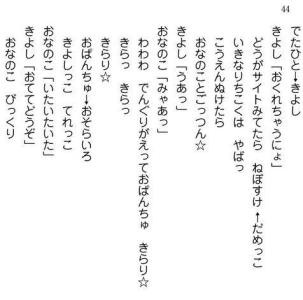 44
でたひと→きよし
きよし「おくれちゃうにょ」
どうがサイトみてたら ねぼすけ←だめっこ
いきなりちこくは やばっ
こうえんぬけたら
おなのことごっつん☆
きよし「うあっ」
おなのこ「みゃあっ」
わわわ でんぐりがえっておぱんちゅ きらり☆
きらっ きらっ
きらり☆
おぱんちゅ→おそらいろ
きよしっこ てれっこ
おなのこ「いたいたいた」
きよし「おててどうぞ」
おなのこ びっくり